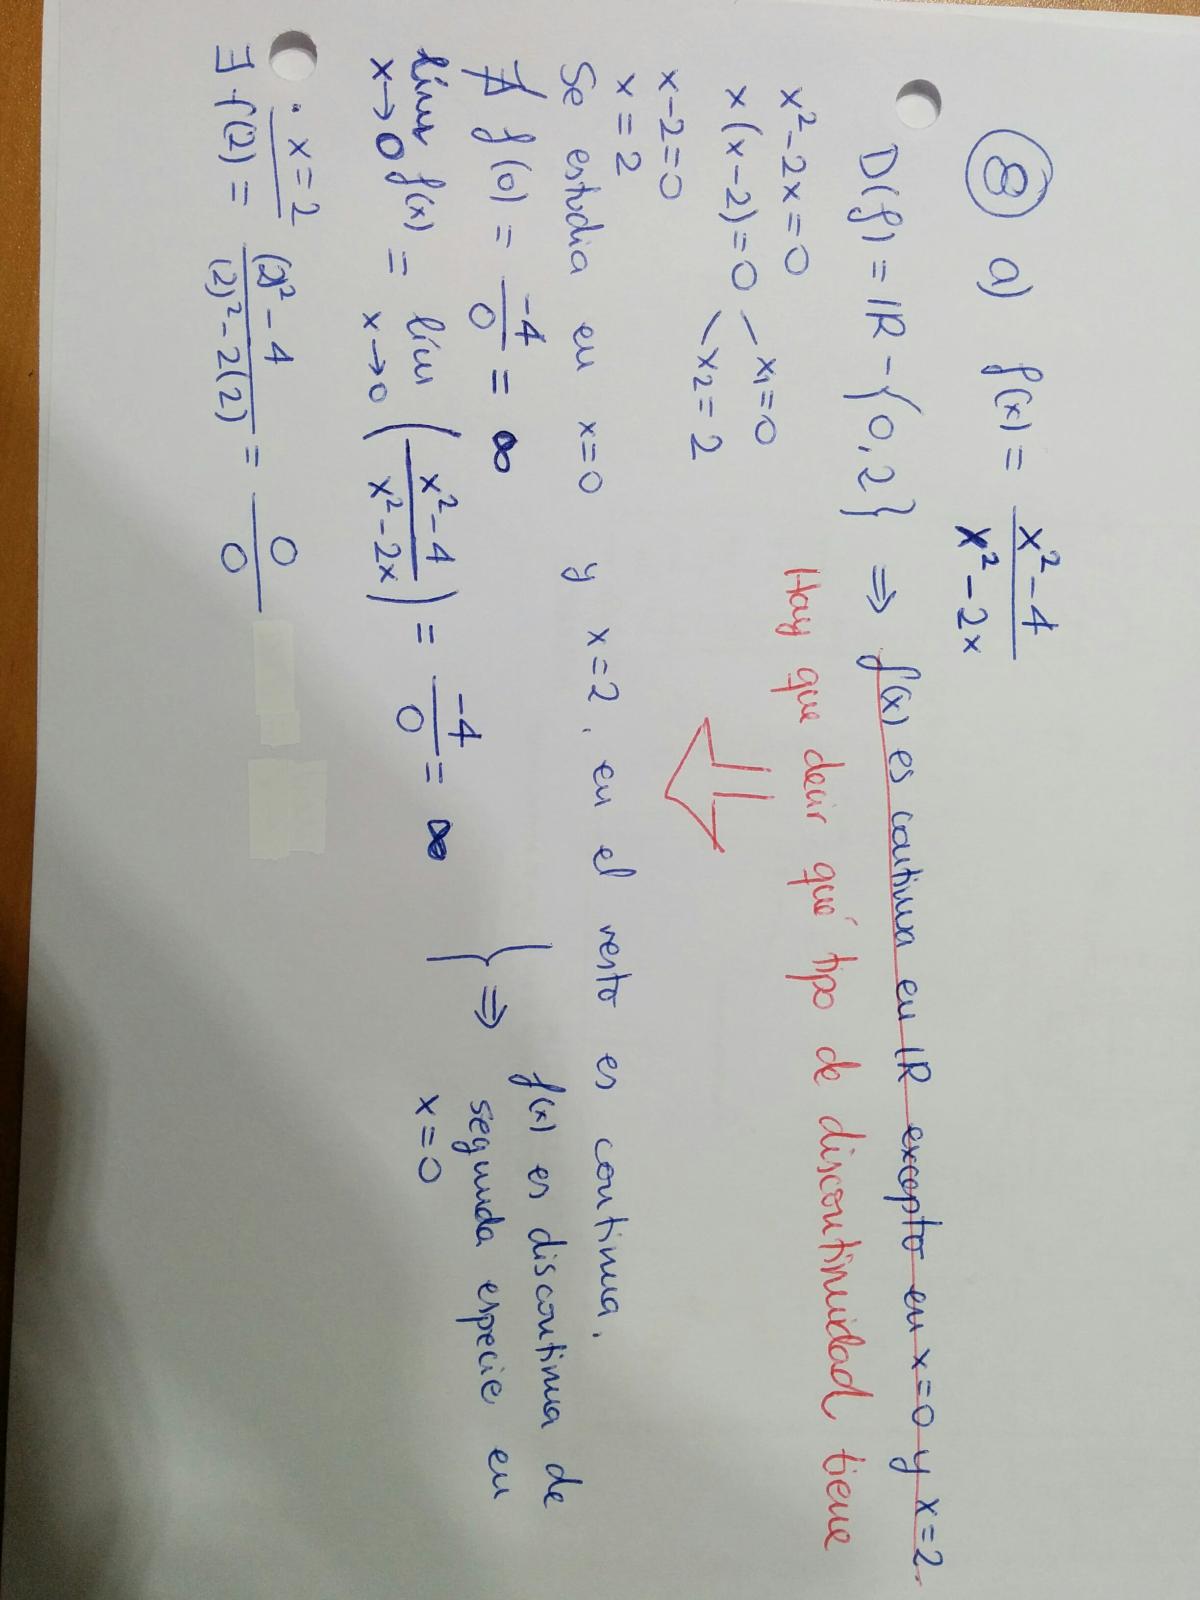 8 a) f(x) = (x² - 4)/(x² - 2x)
D(f) = ℝ - {0, 2} ⇒ f(x) es continua en ℝ excepto en x=0 y x=2.
Hay que decir qué tipo de discontinuidad tiene
x² - 2x = 0
x(x-2) = 0 x₁ = 0
x₂ = 2
x - 2 = 0
x = 2
Se estudia en x=0 y x=2, en el resto es continua.
∄ f(0) = -4/0 = ∞
lím x→0 f(x) = lím x→0 ((x² - 4)/(x² - 2x)) = -4/0 = ∞
} ⇒ f(x) es discontinua de
segunda especie en
x=0
· x=2
∃ f(2) = ((2)² - 4)/((2)² - 2(2)) = 0/0